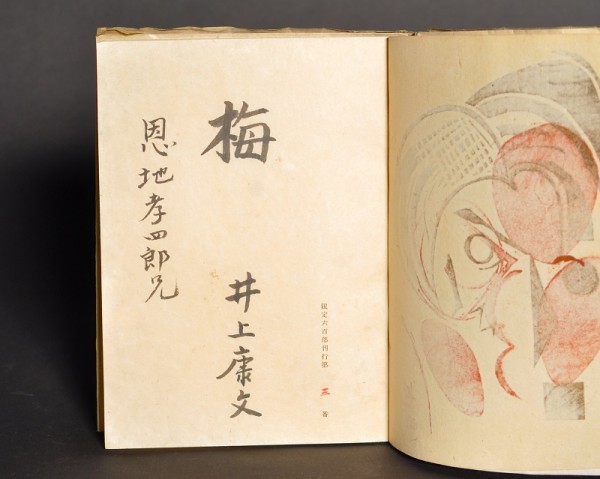 梅
井上康文
恩地孝四郎兄
限定六百部刊行第 三 番